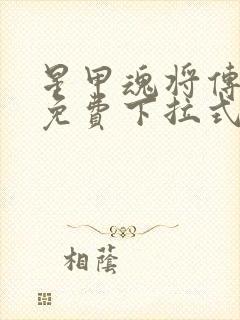 星甲魂将傳
免費下拉式
相蔭